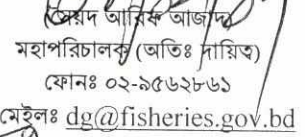 (সৈয়দ আরিফ আজাদ)
মহাপরিচালক (অতিঃ দায়িত্ব)
ফোনঃ ০২-৯৫৬২৮৬১
মেইলঃ dg@fisheries.gov.bd